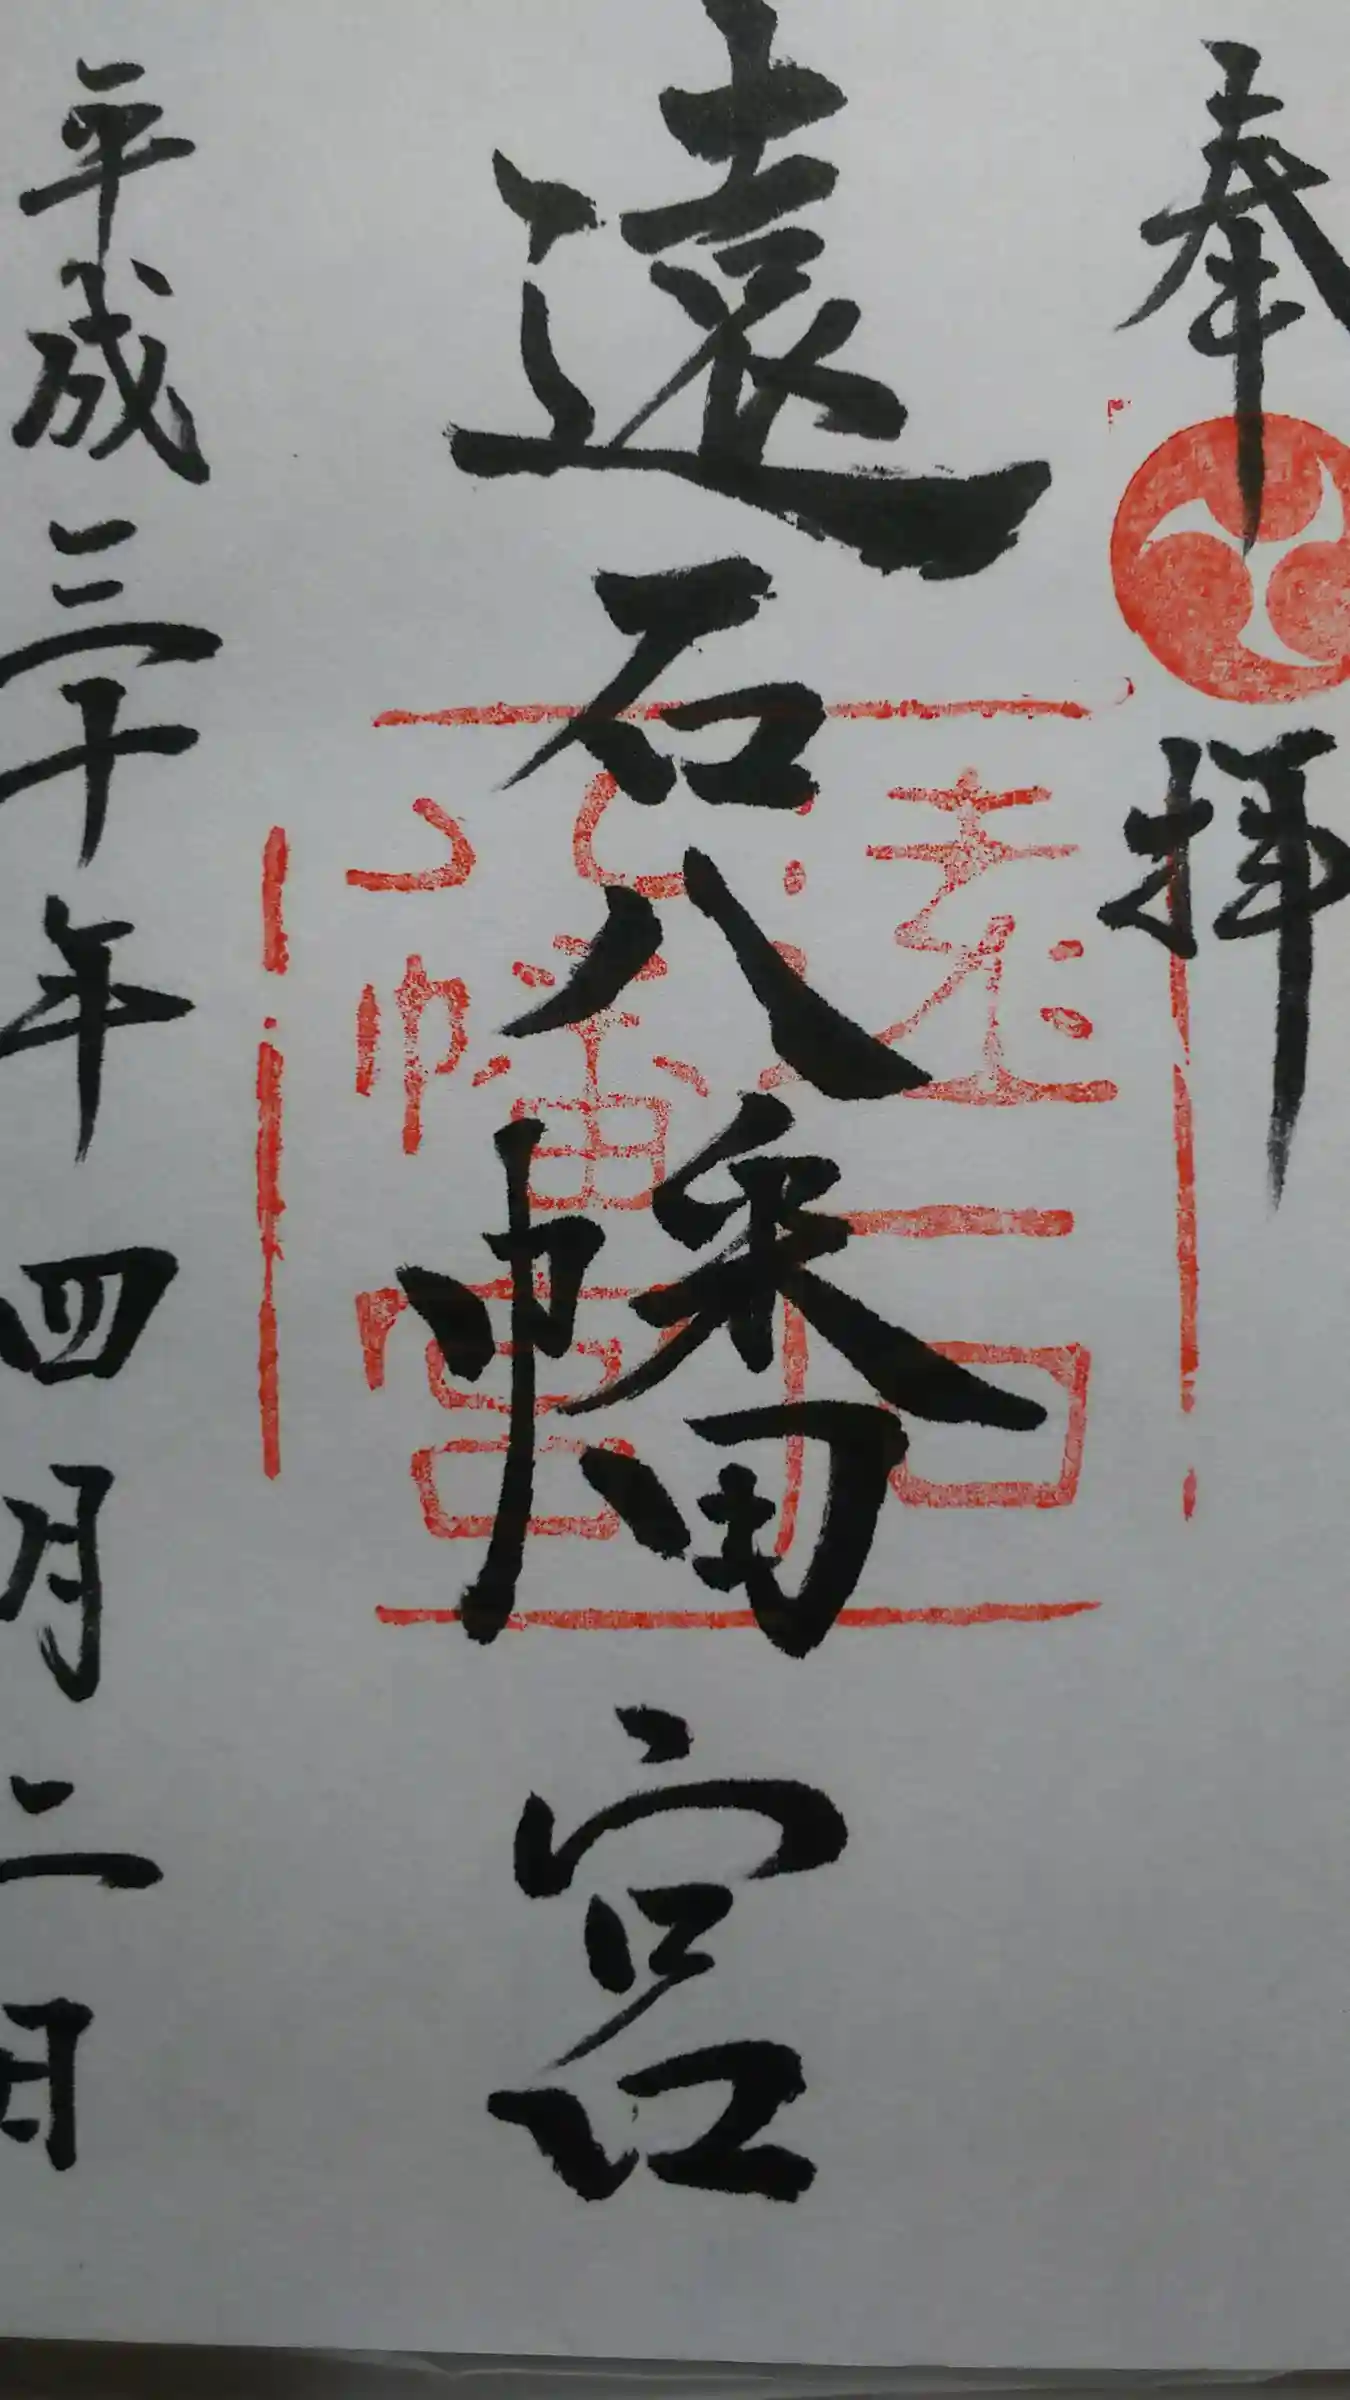 奉拝
遠石八幡宮
平成三十年四月二日
遠石八幡宮